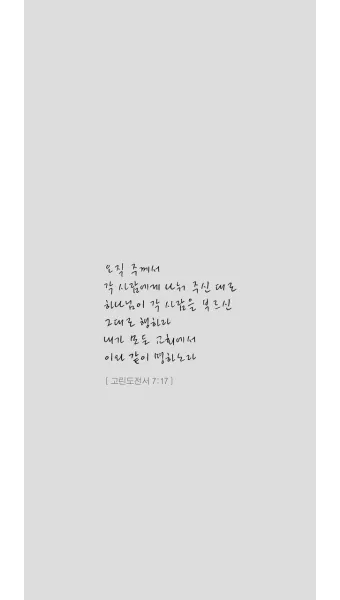 오직 주께서
각 사람에게 나눠 주신 대로
하나님이 각 사람을 부르신
그대로 행하라
내가 모든 교회에서
이와 같이 명하노라
[ 고린도전서 7:17 ]